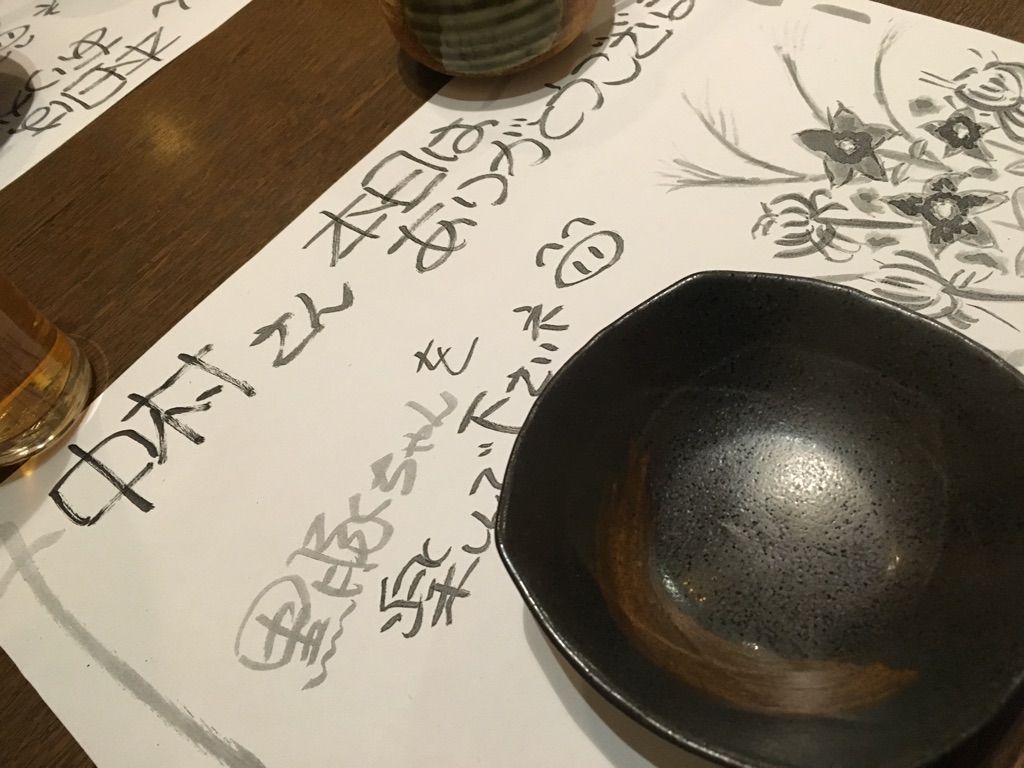 中村さん 本日は
ありがとうござい
黒豚ちゃんを
楽しんで下さいネ
本日は